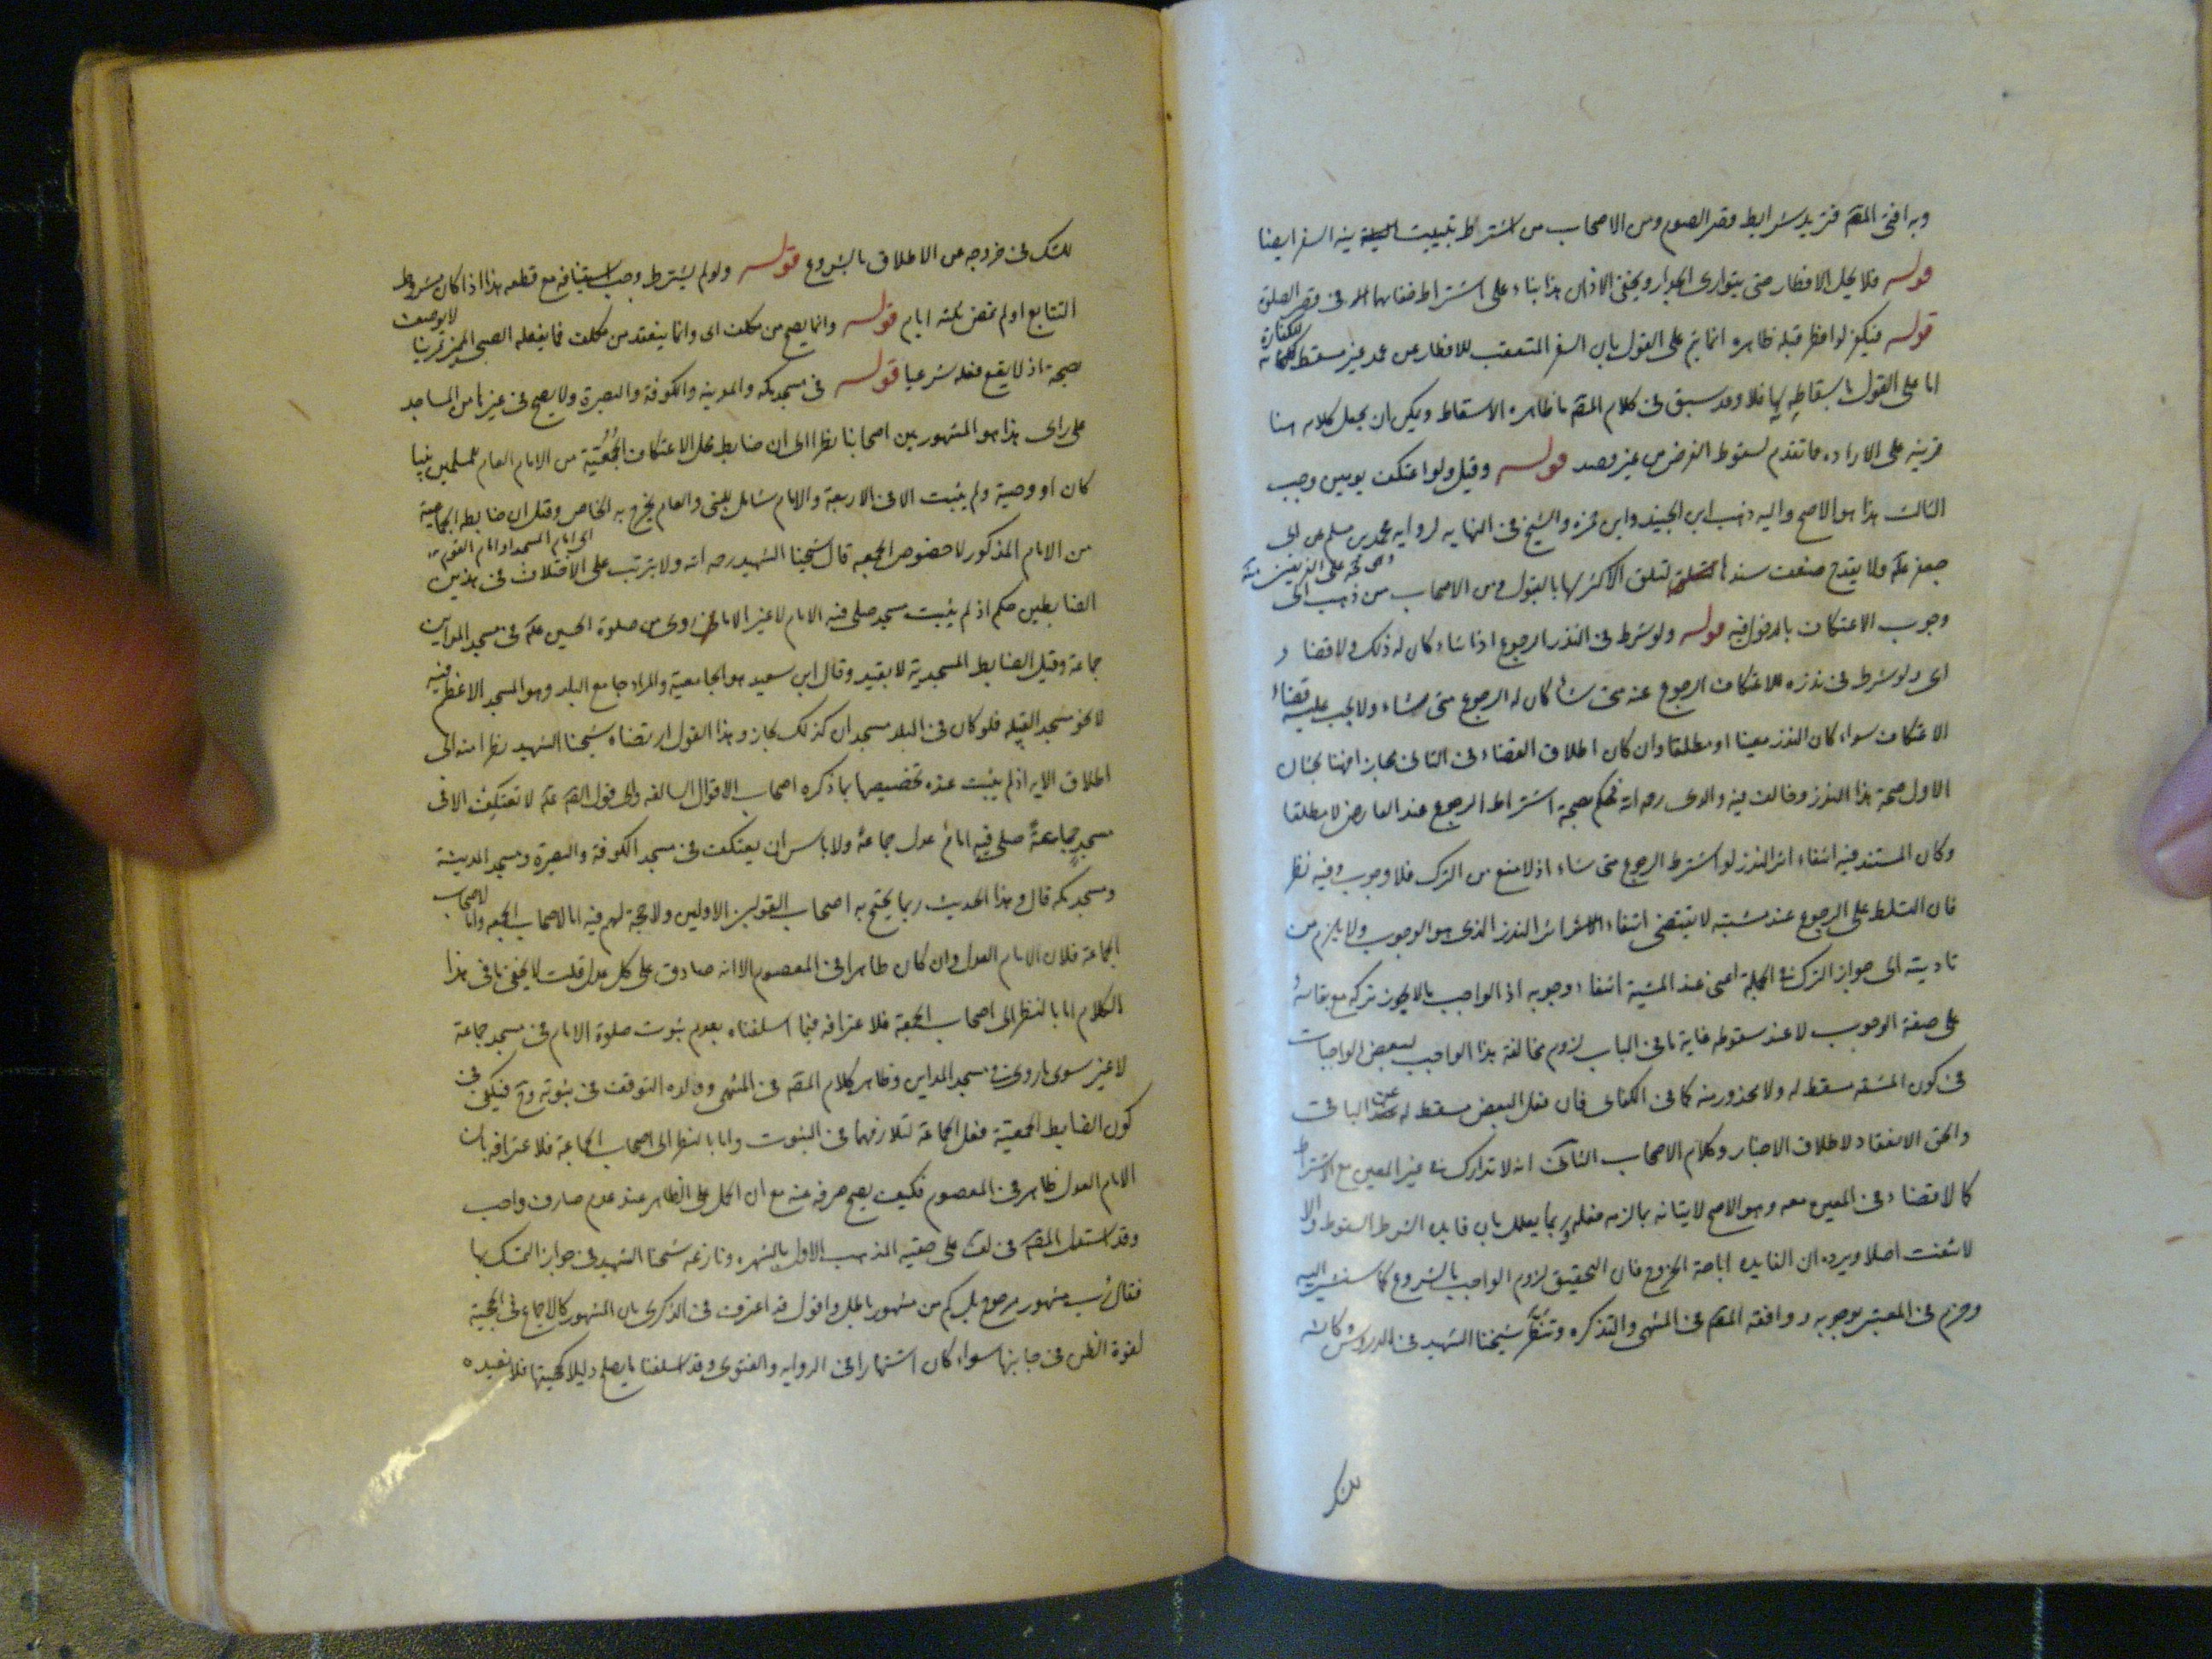 وبه افتى المصَ فتزيد شرايط قصر الصوم ومن الاصحاب من اشترط تبييت نية السفر ايضا
قوله فلا يحل الافطار حتى يتوارى الجدار ويخفى الاذان هذا بناء على اشتراط خفائهما في قصر الصلوة
قوله فيكفر لو افطر قبله ظاهره انما يتم على القول بان السفر المتعقب للافطار عن عمد غير مسقط للكفارة
اما على القول باسقاطه لها فلا وقد سبق في كلام المصَ ما ظاهره الاسقاط ويمكن ان يجعل كلامه هنا
قرينة على الارادة مما تقدم لسقوط الفرض من غير قصد قوله وقيل ولو اعتكف يومين وجب
الثالث هذا هو الاصح واليه ذهب ابن الجنيد وابن حمزه والشيخ في النهايه لروايه محمد بن مسلم عن ابى
جعفر عَ ولا يقدح ضعف سندها لتلقى الاكثر لها بالقبول ومن الاصحاب من ذهب الى
وجوب الاعتكاف بالدخول فيه قوله ولو شرط في النذر الرجوع اذا شاء كان له ذلك ولا قضاء
اى ولو شرط في نذره للاعتكاف الرجوع عنه متى شاء كان له الرجوع متى شاء ولا يجب عليه قضاء
الاعتكاف سواء كان النذر معينا او مطلقا وان كان اطلاق القضاء في الثانى مجازا وهنا بحثان
الاول صحة هذا النذر وخالف فيه والدى رحمه الله فحكم بصحة اشتراط الرجوع عند العارض لا مطلقا
وكان المستند فيه انتفاء اثر النذر لو اشترط الرجوع متى شاء اذ لا منع من الترك فلا وجوب وفيه نظر
فان التسلط على الرجوع عند مشيته لا يقتضى انتفاء اثر النذر الذى هو الوجوب ولا يلزم من
تاديته الى جواز الترك في الجملة اعنى عند المشية انتفاء وجوبه اذ الواجب ما لا يجوز تركه مع بقائه
على صفة الوجوب لا عند سقوطه غاية ما في الباب لزوم مخالفة هذا الواجب لبعض الواجبات
في كون المشيه مسقط له ولا محذور فيه كما في الكفائى فان فعل البعض مسقط له عن الباقى
والحق الانعقاد لاطلاق الاخبار وكلام الاصحاب الثانى انه لا تدارك في غير المعين مع الاشتراط
كما لا قضاء في المعين معه وهو الاصح لاتيانه بما لزمه فعله وربما يعلل بان فايده الشرط السقوط والا
لانتفت اصلا ويرده ان الفايده اباحة الخروج فان التحقيق لزوم الواجب بالشروع كما سنشير اليه
وجزم في المعتبر بوجوبه ووافقه المصَ في المنتهى والتذكره وتنظر شيخنا الشهيد في الدروس وكانه
للشك في خروجه عن الاطلاق بالشروع قوله ولو لم يشترط وجب استينافه مع قطعه هذا اذا كان مشروط
التتابع او لم تمض ثلثه ايام قوله وانما يصح من مكلف اى وانما ينعقد من مكلف فما يفعله الصبى المميز تمرينا لا يوصف
بصحة اذ لا يقع فعله شرعيا قوله في مسجد مكه والمدينه والكوفة والبصرة ولا يصح في غيرها من المساجد
على راى هذا هو المشهور بين اصحابنا نظرا الى ان ضابط محل الاعتكاف الجمعية من الامام العام للمسلمين نبيا
كان او وصية ولم يثبت الا في الاربعة والامام شامل للنبى والعام يخرج به الخاص وقيل ان ضابطه الجماعية
من الامام المذكور لا خصوص الجمعه قال شيخنا الشهيد رحمه الله ولا يترتب على الاختلاف في هذين
الضابطين حكم اذ لم يثبت مسجد صلى فيه الامام لا غير الا ما روى من صلوة الحسن عَ في مسجد المداين
جماعة وقيل الضابط المسجدية لا بقيد وقال ابن سعيد هو الجامعية والمراد جامع البلد وهو المسجد الاعظم فيه
لا نحو مسجد القبيله فلو كان في البلد مسجدان كذلك لجاز وهذا القول ارتضاه شيخنا الشهيد نظرا منه الى
اطلاق الايه اذ لم يثبت عنده تخصيصها بما ذكره اصحاب الاقوال السالفه والى قول الصَ عَ لا تعتكف الا في
مسجد جماعة صلى فيه امام عدل جماعة ولا باس ان يعتكف في مسجد الكوفة والبصرة ومسجد المدينة
ومسجد مكه قال وهذا الحديث ربما يحتج به اصحاب القولين الاولين ولا حجة لهم فيه اما لاصحاب الجمعه واما لاصحاب
الجماعة فلان الامام العدل وان كان ظاهرا في المعصوم الا انه صادق على كل عدل قلت لا يخفى ما في هذا
الكلام اما بالنظر الى اصحاب الجمعة فلاعترافه فيما اسلفناه بعدم ثبوت صلوة الامام في مسجد جماعة
لا غير سوى ما روى في مسجد المداين وظاهر كلام المصَ في المنتهى وولده التوقف في ثبوته وحَ فيكفى في
كون الضابط الجمعية فعل الجماعة لتلازمهما في الثبوت واما بالنظر الى اصحاب الجماعة فلاعترافه بان
الامام العدل ظاهر في المعصوم فكيف يصح صرفه عنه مع ان الحمل على الظاهر عند عدم صارف واجب
وقد استدل المصَ في لف على حقية المذهب الاول بالشهره ونازعه شيخنا الشهيد في جواز التمسك بها
فقال رب مشهور مرجوح بل كم من مشهور باطل واقول قد اعترف في الذكرى بان المشهور كالاجماع في الحجية
لقوة الظن في جانبها سواء كان اشتهارا في الروايه او الفتوى وقد اسلفنا ما يصلح دليلا لحجيتها فلا نعيده